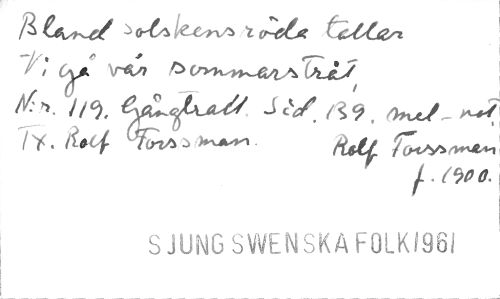 Bland solskensröda tallar
Vi gå vår sommarstråt,
N:r. 119. Gångtratt. Sid. 139. mel-not.
Tx. Rolf Forssman. Rolf Forssman
f. 1900.
SJUNG SWENSKA FOLK 1961